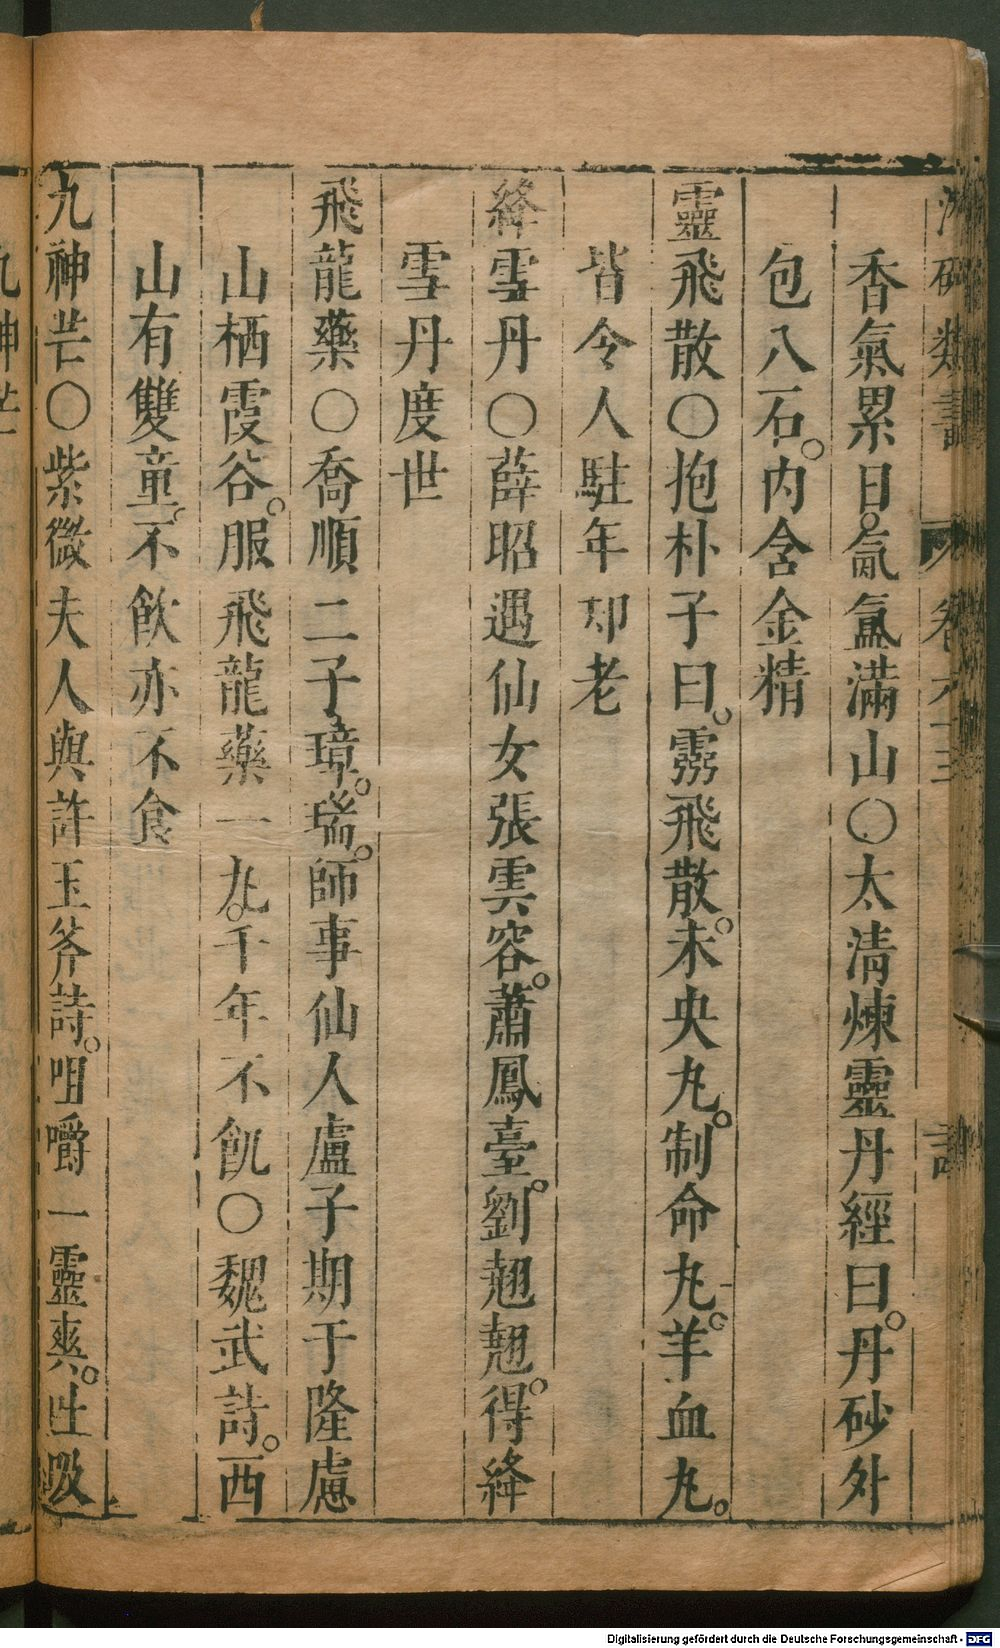 類書 卷六十三
香氣累日。氤氳滿山〇太清煉靈丹經曰。丹砂外
包八石。內含金精
靈飛散〇抱朴子曰。靈飛散。未央丸。制命丸。羊血丸。
皆令人駐年却老
絳雪丹〇薛昭遇仙女張雲容。蕭鳳臺。劉翹翹。得絳
雪丹度世
飛龍藥〇喬順二子璋。瑞。師事仙人盧子期于隆慮
山栖霞谷。服飛龍藥一丸。千年不飢〇魏武詩。西
山有雙童。不飲亦不食
九神芒〇紫微夫人與許玉斧詩。咀嚼一靈爽。吐吸
九神芒
Digitalisierung gefördert durch die Deutsche Forschungsgemeinschaft - DFG